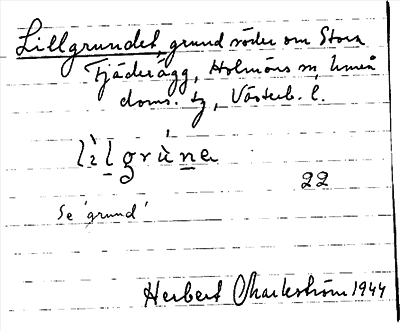 Lillgrundet, grund söder om Stora
Fjäderägg, Holmöns sn, Umeå
doms. tg, Västerb. l.
lìlgrùna
22
Se 'grund'
Herbert Markström 1944